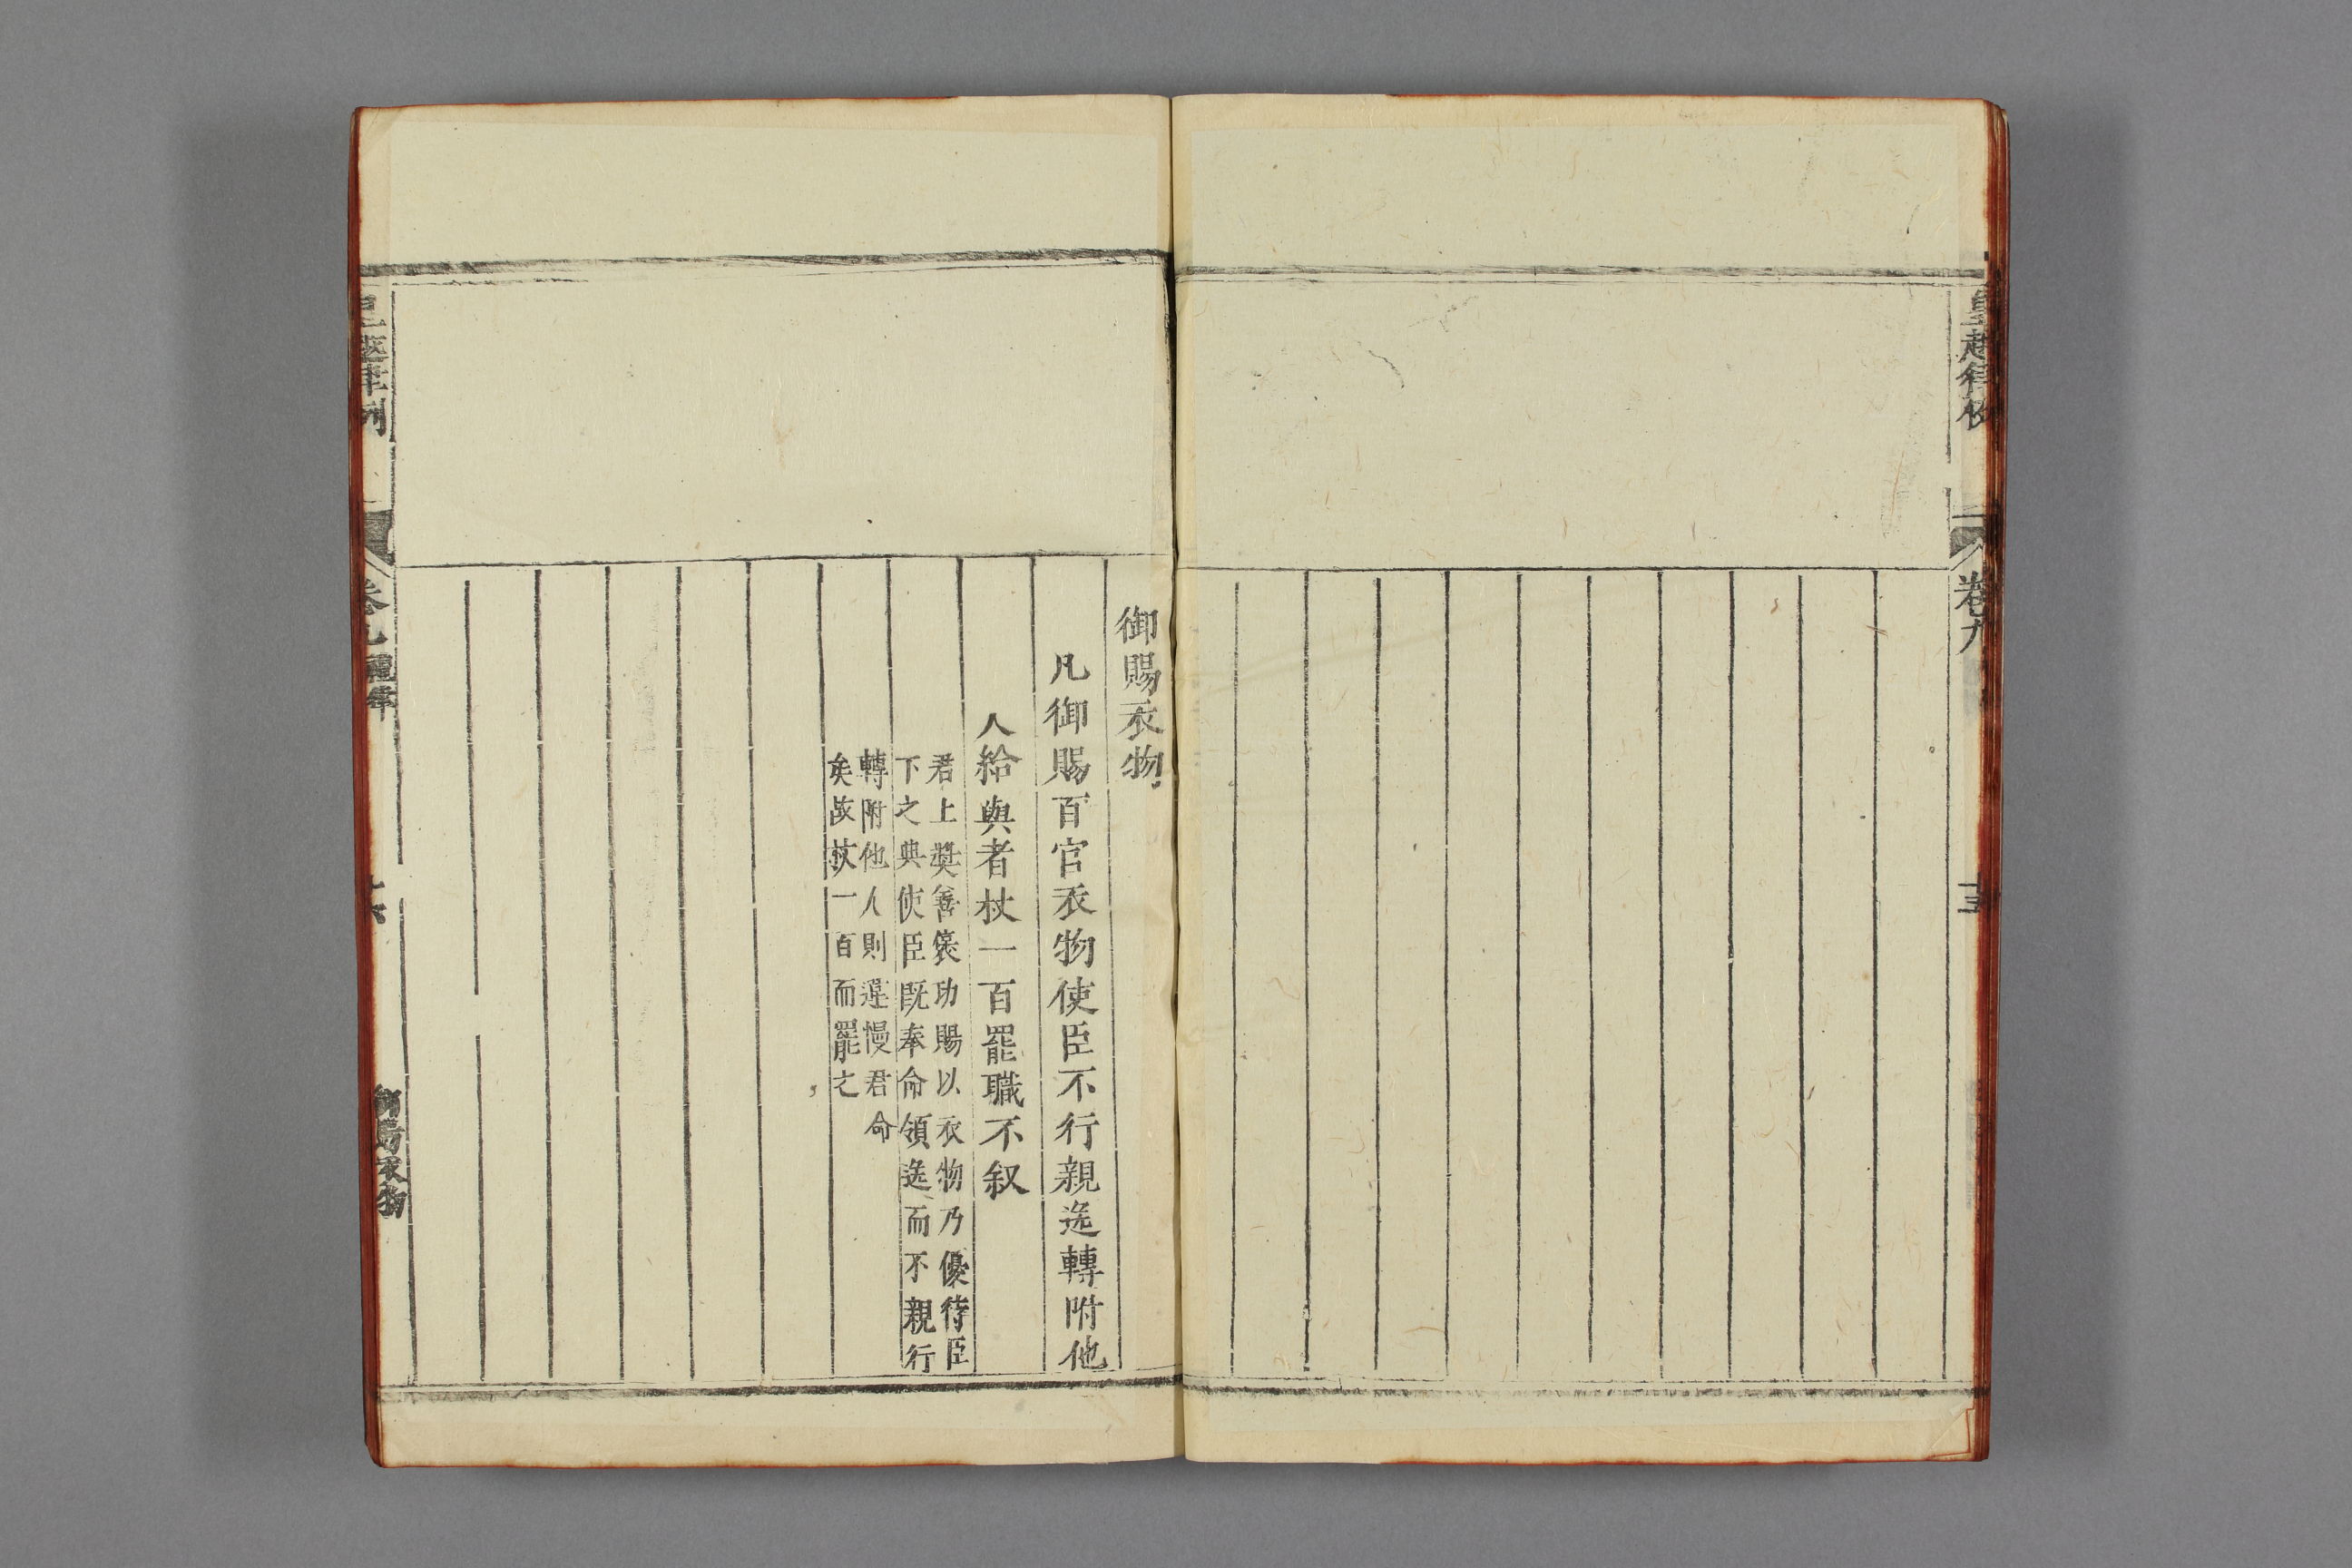 皇越律例
卷九
十五
御賜衣物
凡御賜百官衣物使臣不行親送轉附他
人給與者杖一百罷職不叙
君上獎善褒功賜以衣物乃優待臣
下之典使臣既奉命領送而不親行
轉附他人則遲慢君命
矣故杖一百而罷之
皇越律例
卷九
禮律
十六
御賜衣物